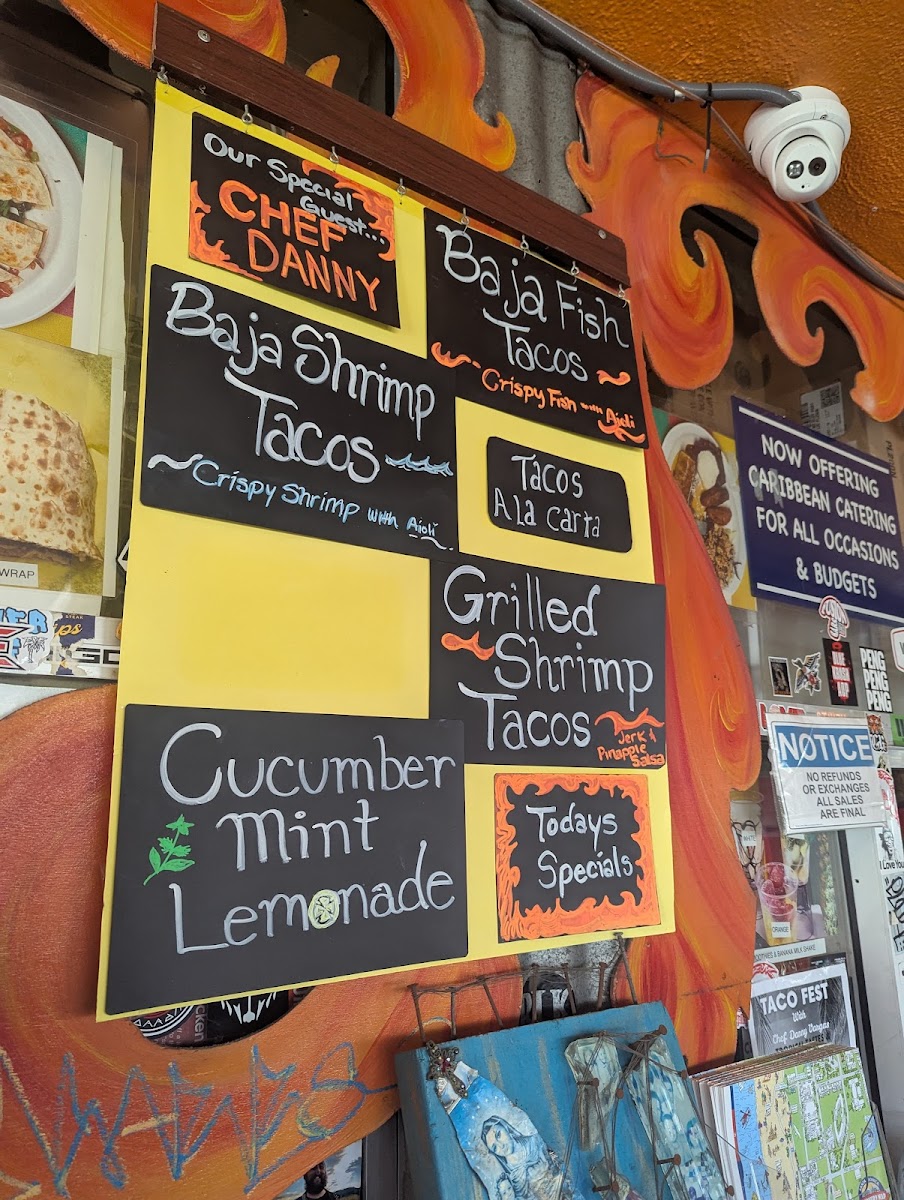 Our Special
Guest...
CHEF
DANNY
Baja Fish
Tacos
Crispy Fish with Aioli
Baja Shrimp
Tacos
Crispy Shrimp with Aioli
Tacos
A la Carta
Grilled
Shrimp
Tacos
Jerk &
Pinapple
Salsa
Cucumber
Mint
Lemonade
Todays
Specials
NOW OFFERING
CARIBBEAN CATERING
FOR ALL OCCASIONS
& BUDGETS
WRAP
PENG
PENG
PENG
NOTICE
NO REFUNDS
OR EXCHANGES
ALL SALES
ARE FINAL
I Love You
WHITE
ORANGE
SMOOTHIES & BANANA MILK SHAKE
TACO FEST
With
Chef Danny Vargas